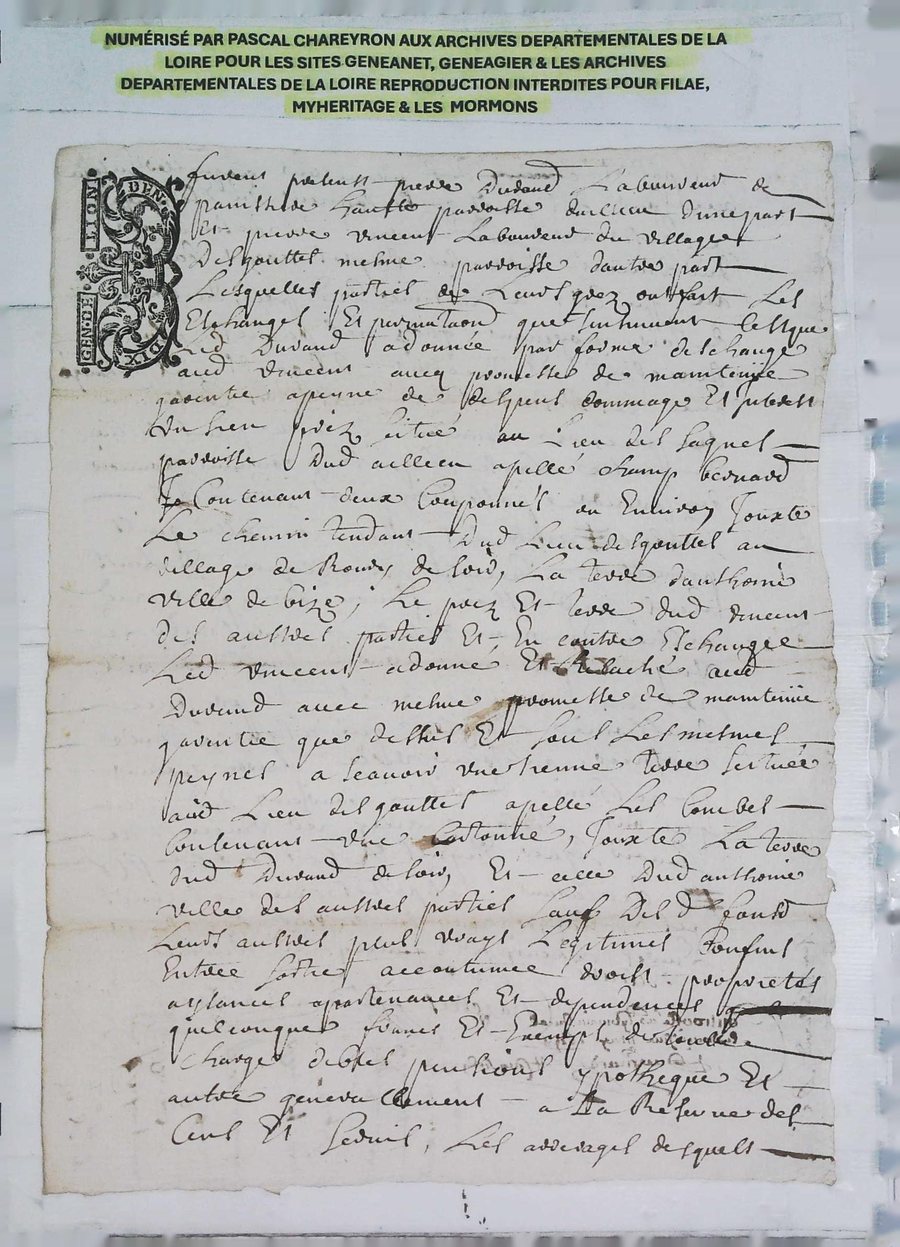 NUMÉRISÉ PAR PASCAL CHAREYRON AUX ARCHIVES DEPARTEMENTALES DE LA
LOIRE POUR LES SITES GENEANET, GENEAGIER & LES ARCHIVES
DEPARTEMENTALES DE LA LOIRE REPRODUCTION INTERDITES POUR FILAE,
MYHERITAGE & LES MORMONS
GEN·DE LION
DEN·
DIX
furent presens pierre Durand Laboureur de
parroisse d'une part
Et pierre vincent Laboureur du village
Des gouttes mesme parroisse dautre part
Lesquelles parties de Leurs grez ont fait Les
Eschanges Et permutaon que sensuivent
Led Durand a donnée par forme deschange
aud vincent avecq promesse de maintenue
garentie a peyne de despens dommage Et
Un sien prez situé au Lieu des
parroisse Dud apellé champ bernard
Contenant deux Couponnés ou Environ Jouxte
Le chemin tendant Dud Lieu des gouttes au
village de de soir, La terre danthoine
ville de bize, Le prez Et terre dud vincent
des autres parties Et En contre Eschange
Led vincent a donne Et Relaché aud
Durand avec mesme promesse de maintenue
garentie que dessus Et soub Les mesmes
peynes a scavoir une sienne terre située
aud Lieu des gouttes apellé Les Combes
Contenant une Jouxte La terre
dud Durand de soir, Et celle Dud anthoine
ville des autres parties sauf Des d
Leurs autres plus vrays Legitimes Confins
Entrée sortie accoutumée droits proprietés
aysances apartenances Et dependences
quelconques francs Et Exempt de toutte
charge debtes pensions ypotheque Et
autre generallement a La Reserve des
Cens Et Servis, Les arrerages desquels